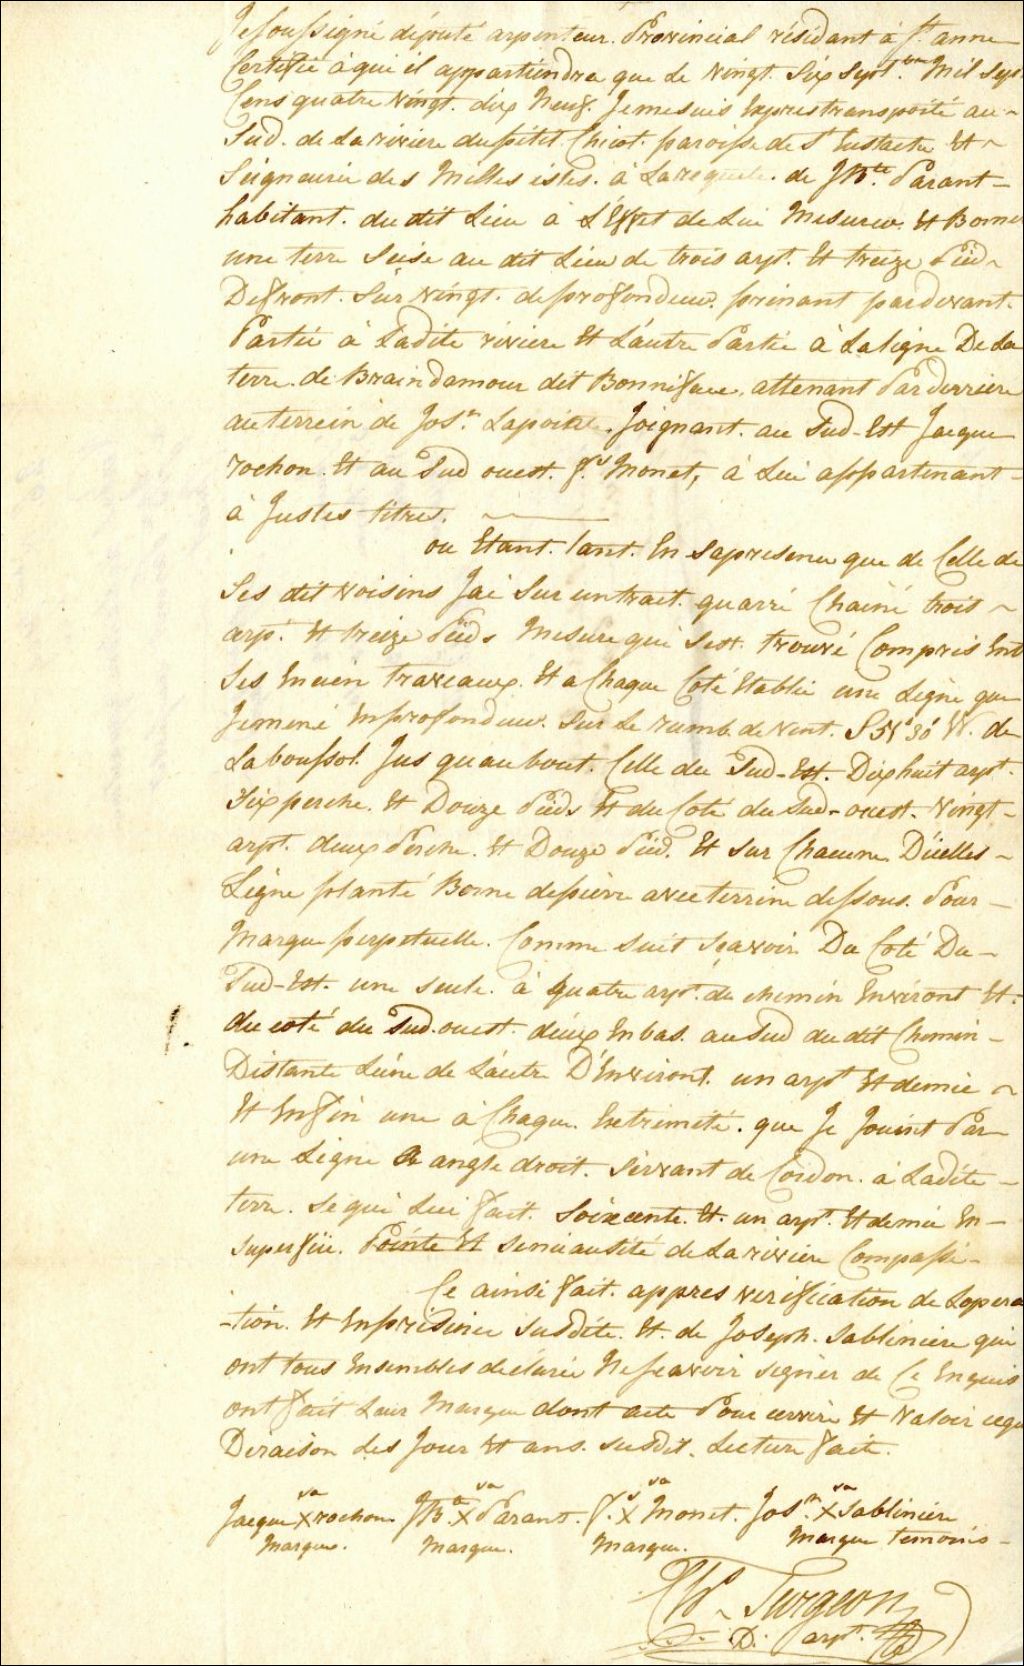 Je soussigné député arpenteur Provincial résidant à Ste anne
Certifie à qui il appartiendra que Le vingt Six Sept.bre Mil Sept
Cens quatre vingt dix Neuf. Je me suis Expres transporté au
Sud. de La riviere du petit Chicot. paroisse de St Eustache Et
Seigneurie des Milles isles. à La requete de JB.te Parant
habitant. du dit Lieu à L'Effet de Lui Mesurer Et Borner
une terre Seise au dit Lieu de trois arpt. Et treize Piéd
De front. Sur vingt. de profondeur. prenant par devant
Partie à Ladite riviere Et L'autre Partie à La ligne De La
terre de Braindamour dit Bonniface, attenant Par derriere
au terrein de Jos.h Lapointe. Joignant au Sud-Est Jacque
rochon. Et au Sud ouest. f.s Monet, à Lui appartenant
à Justes titres.
ou Etant. tant. En Sa presence que de Celle de
Ses dit voisins Jai Sur un trait quarré Chainé trois
arpt. Et treize Piéds Mesure qui Sest trouvé Compris Ent
Ses Encien traveaux. Et a Chaque Coté Etablie une Ligne que
Jemené En profondeur. Sur Le rumb de vent. S 30' W. de
La boussol. Jus quau bout. Celle du Sud-Est. Dix huit arpt.
Six perche. Et Douze Piéds Et du Coté du Sud-ouest. vingt
arpt. deux Perche. Et Douze Piéd. Et Sur Chacune D'icelles
Ligne planté Borne de pierre avec terrine dessous. Pour
Marque perpetuelle. Comme Suit Sçavoir Du Coté Du
Sud-Est. une Seule. à quatre arpt. du chemin Environt Et
du coté du Sud.ouest. deux En bas. au Sud du dit Chemin
Distante Lune de L'autre D'Environt. un arpt Et demie
Et Enfin une à Chaque Extrimeté. que Je Joint Par
une Ligne a angle droit. Servant de Cordon. à Ladite
terre. Se qui Lui fait. Soixcente. Et. un arpt. Et demie En
Superfiie. Pointe Et Senieausité de La riviere Compassé
Ce ainsi fait. appres verification de Lopera
-tion. Et En presence Susdite. Et. de Joseph. Sabliniere qui
ont tous Ensembles declarée Ne scavoir Signer de Ce Enquis
ont fait Leur Marque dont acte Pour servire Et valoir cequ
De raison Les Jour Et ans. Susdit. Lecture faite.
sa sa sa sa
Jacque X rochon JB.te X Parant. f.s X Monet. Jos.h X Sabliniere
Marque. Marque. Marque. Marque temoins
W. Turgeon
D. arpt.